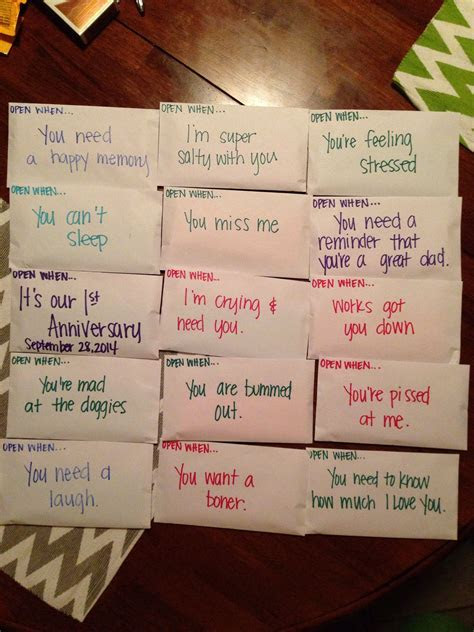 OPEN WHEN...
You need
a happy memory
OPEN WHEN...
I'm super
salty with you
OPEN WHEN...
You're feeling
stressed
OPEN WHEN...
You can't
sleep
OPEN WHEN...
You miss me
OPEN WHEN...
You need a
reminder that
you're a great dad.
OPEN WHEN...
It's our 1st
Anniversary
September 28, 2014
OPEN WHEN...
I'm crying &
need you.
OPEN WHEN...
Works got
you down
OPEN WHEN...
You're mad
at the doggies
OPEN WHEN...
You are bummed
out.
OPEN WHEN...
You're pissed
at me.
OPEN WHEN...
You need a
laugh.
OPEN WHEN...
You want a
boner.
OPEN WHEN...
You need to know
how much I Love You.